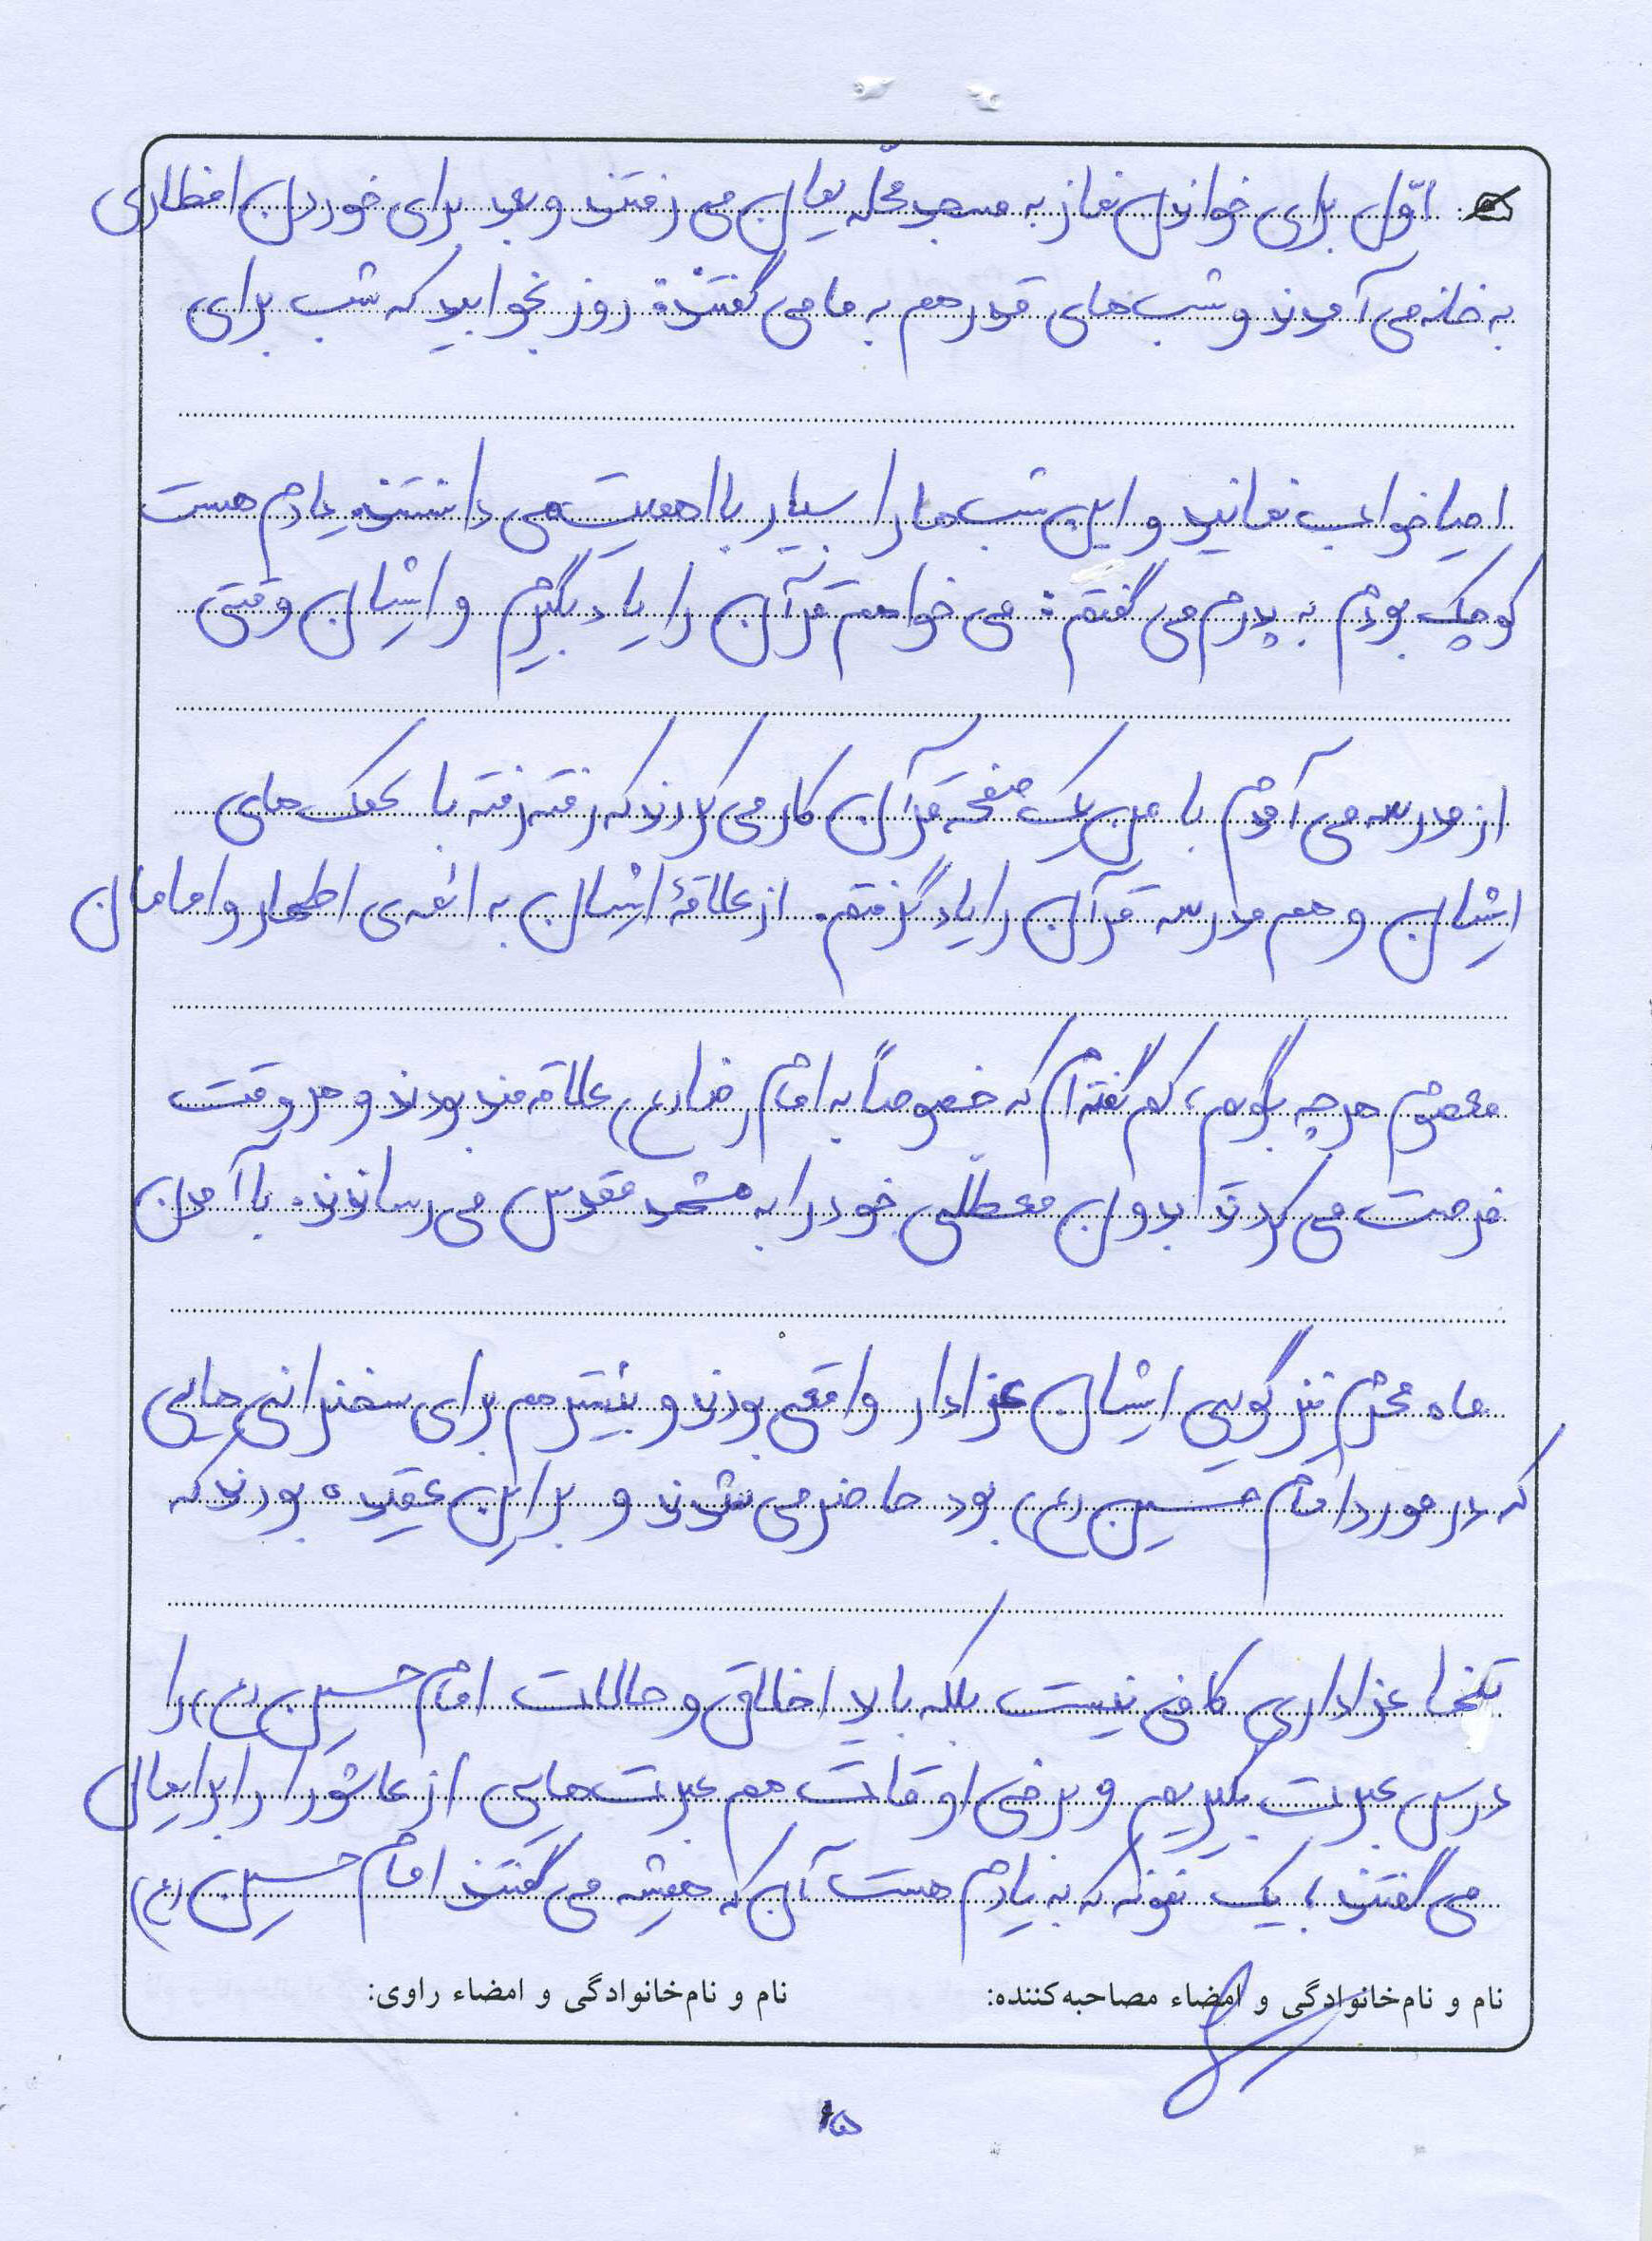 اوّل برای خواندن نماز به مسجد محلّه یمان می رفتند و بعد برای خوردن افطاری
به خانه می آمدند و شب های قدر هم به ما می گفتند: روز بخوابید که شب برای
احیا خواب نمانید و این شب ها را بسیار با اهمیت می دانستند. یادم هست
کوچک بودم به پدرم می گفتم: می خواهم قرآن را یاد بگیرم و ایشان وقتی
از مدرسه می آمدم با من یک صفحه قرآن کار می کردند که رفته رفته با کمک های
ایشان و هم مدرسه قرآن را یاد گرفتم. از علاقهٔ ایشان به ائمه ی اطهار و امامان
معصوم هر چه بگویم، کم گفته ام که خصوصاً به امام رضا (ع) علاقه مند بودند و هر وقت
فرصت می کردند بدون معطلّی خود را به مشهد مقدس می رساندند. با آمدن
ماه محرّم نیز گویی ایشان عزادار واقعی بودند و بیشتر هم برای سخنرانی هایی
که در مورد امام حسین (ع) بود حاضر می شدند و بر این عقیده بودند که
تنها عزاداری کافی نیست بلکه باید اخلاق و حالات امام حسین (ع) را
درس عبرت بگیریم و برخی اوقات هم عبرت هایی از عاشورا را برایمان
می گفتند؛ یک نمونه که به یادم هست آن که همیشه می گفتند امام حسین (ع)
نام و نام‌خانوادگی و امضاء مصاحبه‌کننده:
نام و نام‌خانوادگی و امضاء راوی:
۱۵